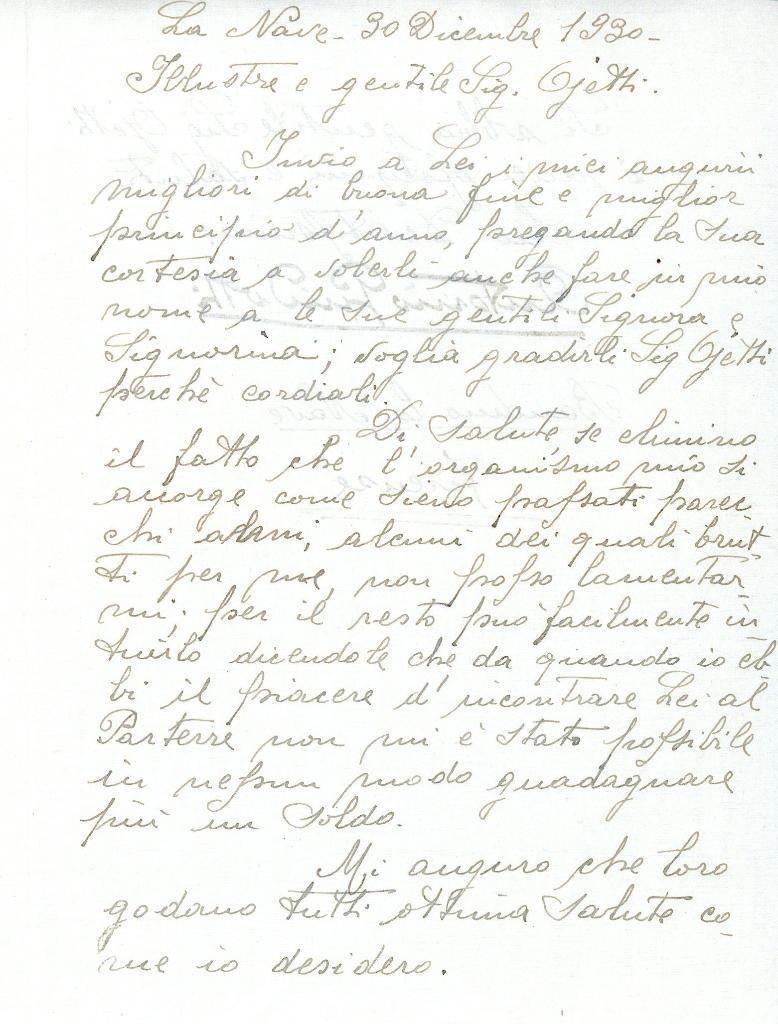 La Nave - 30 Dicembre 1930 -
Illustre e gentile Sig. Ojetti.
Invio a Lei i miei augurii
migliori di buona fine e miglior
principio d'anno, pregando la Sua
cortesia a volerli anche fare in mio
nome a le sue gentili Signora e
Signorina; voglia gradirli Sig Ojetti
perchè cordiali.
Di salute, se elimino
il fatto che l'organismo mio si
accorge come sieno passati parec
chi anni, alcuni dei quali brut
ti per me, non posso lamentar-
mi; per il resto può facilmente in
tuirlo dicendole che da quando io eb-
bi il piacere d'incontrare Lei al
Parterre non mi è stato possibile
in nessun modo guadagnare
più un soldo.
Mi auguro che loro
godano tutti ottima salute co-
me io desidero.